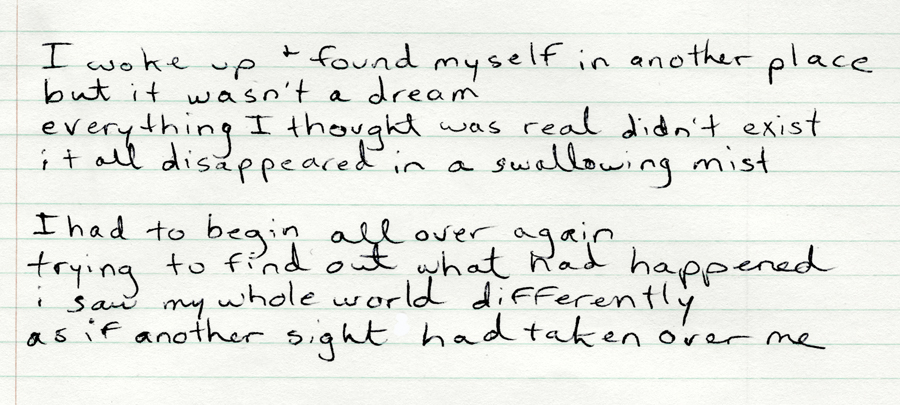 I woke up + found myself in another place
but it wasn't a dream
everything I thought was real didn't exist
it all disappeared in a swallowing mist
I had to begin all over again
trying to find out what had happened
i saw my whole world differently
as if another sight had taken over me